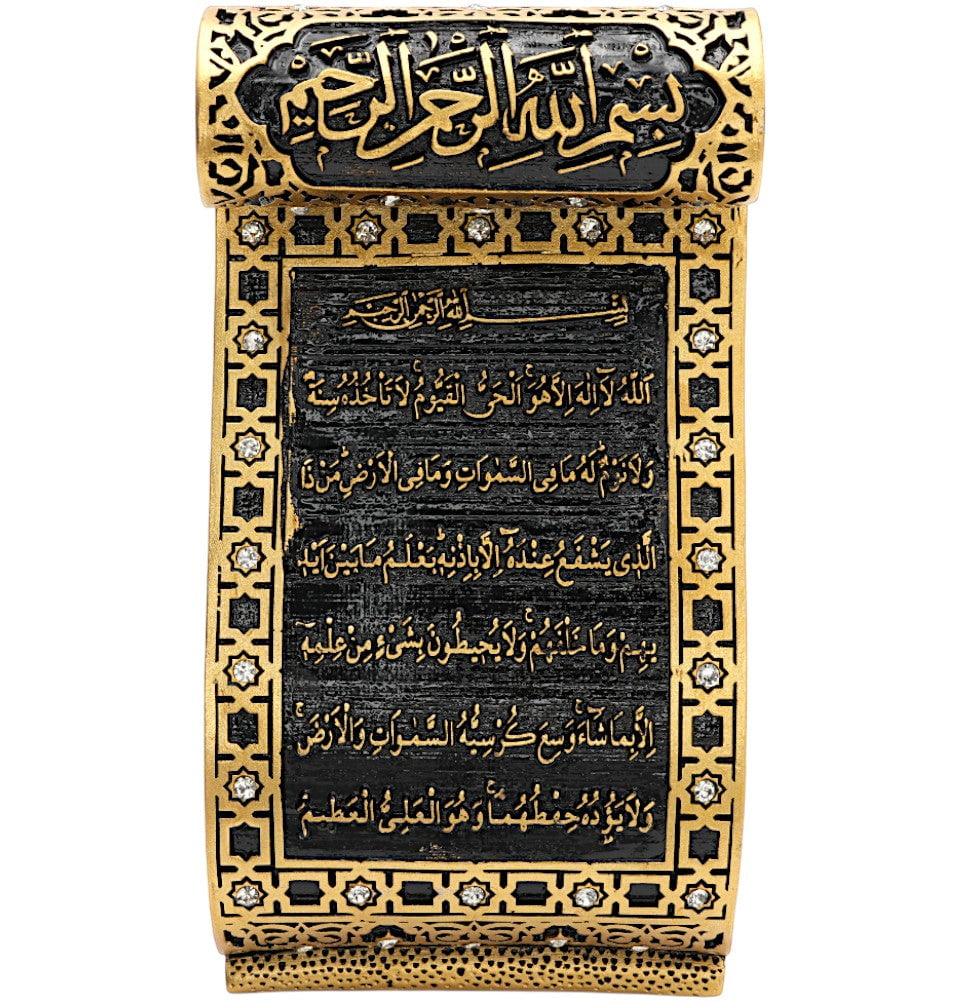 بِسْمِ اللّٰهِ الرَّحْمٰنِ الرَّحِيْمِ
بِسْمِ اللّٰهِ الرَّحْمٰنِ الرَّحِيْمِ
اَللّٰهُ لَٓا اِلٰهَ اِلَّا هُوَۚ اَلْحَيُّ الْقَيُّومُۚ لَا تَأْخُذُهُ سِنَةٌ
وَلَا نَوْمٌۜ لَهُ مَا فِي السَّمٰوَاتِ وَمَا فِي الْاَرْضِۜ مَنْ ذَا
الَّذِي يَشْفَعُ عِنْدَهُٓ اِلَّا بِاِذْنِهِۜ يَعْلَمُ مَا بَيْنَ اَيْدِ
يهِمْ وَمَا خَلْفَهُمْۚ وَلَا يُحِيطُونَ بِشَيْءٍ مِنْ عِلْمِهِٓ
اِلَّا بِمَا شَٓاءَۚ وَسِعَ كُرْسِيُّهُ السَّمٰوَاتِ وَالْاَرْضَۚ
وَلَا يَؤُدُهُ حِفْظُهُمَاۚ وَهُوَ الْعَلِيُّ الْعَظِيمُ